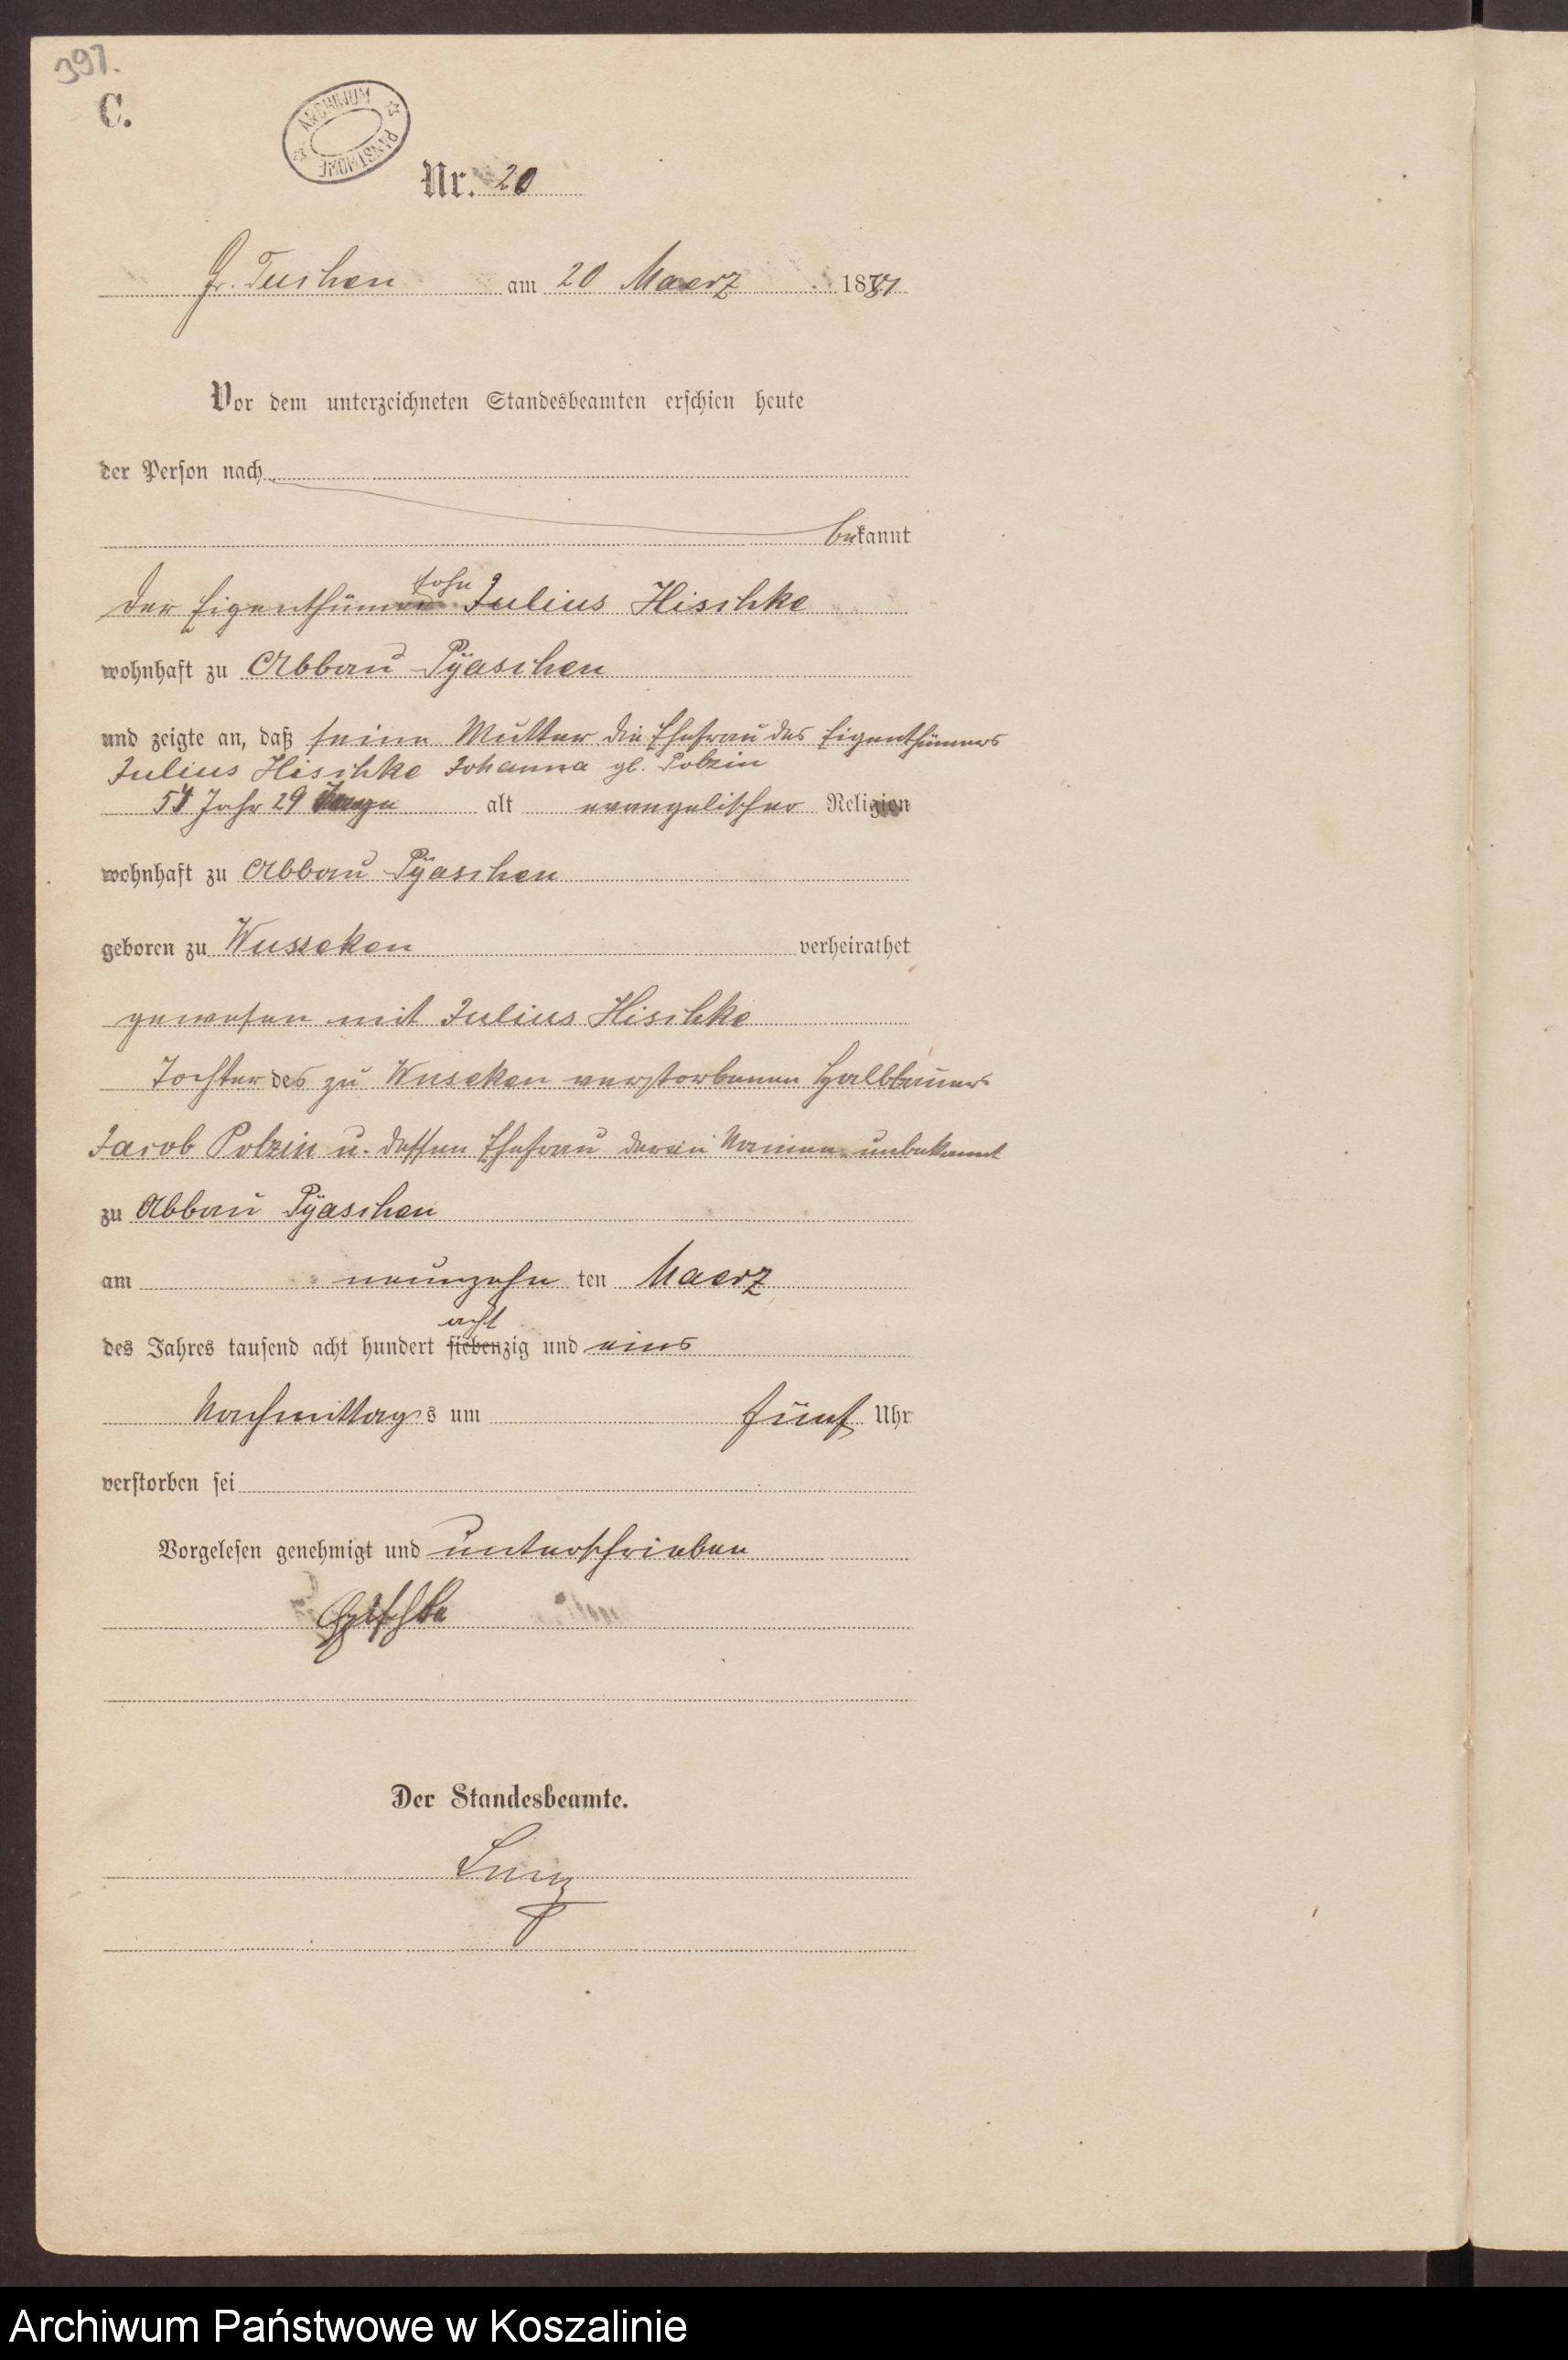 397.
C.
ARCHIWUM PAŃSTWOWE
Nr. 20
Gr. Tuchen am 20 Maerz 1881
Vor dem unterzeichneten Standesbeamten erschien heute
der Person nach
bekannt
der Eigenthümersohn Julius Hischke
wohnhaft zu Abbau Pyaschen
und zeigte an, daß seine Mutter die Ehefrau des Eigenthümers
Julius Hischke Johanna gb. Polzin
57 Jahr 29 Tage alt evangelischer Religion
wohnhaft zu Abbau Pyaschen
geboren zu Wusseken verheirathet
gewesen mit Julius Hischke
Tochter des zu Wuseken verstorbenen Halbbauers
Jacob Polzin u. dessen Ehefrau deren Namen unbekannt
zu Abbau Pyaschen
am neunzehn ten Maerz
des Jahres tausend acht hundert siebenzig acht und eins
Nachmittags um fünf Uhr
verstorben sei
Vorgelesen genehmigt und unterschrieben
Hischke
Der Standesbeamte.
Archiwum Państwowe w Koszalinie